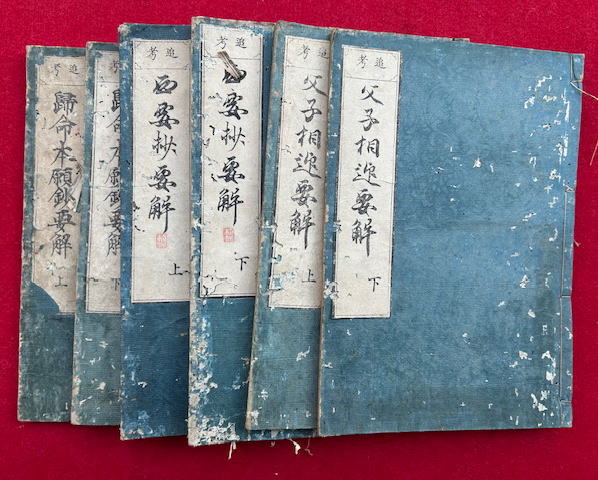 追考
歸命本願鈔要解
上
追考
歸命本願鈔要解
下
追考
西要抄要解
上
追考
西要抄要解
下
追考
父子相迎要解
上
追考
父子相迎要解
下